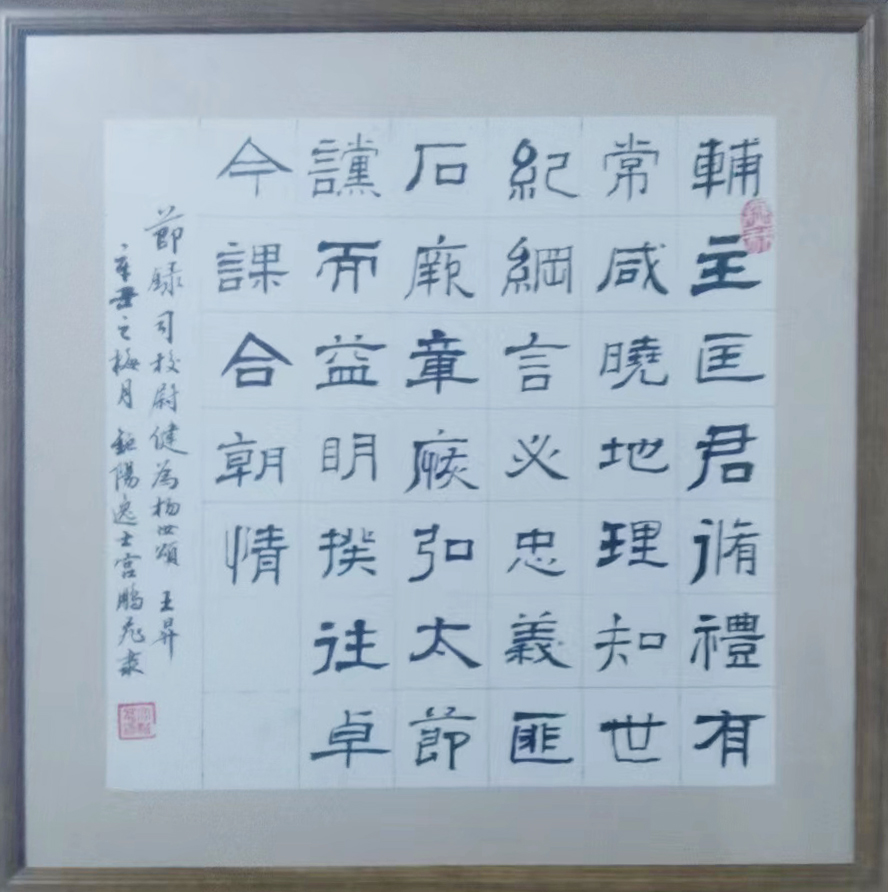 輔主匡君脩禮有
常咸曉地理知世
紀綱言必忠義匪
石厥章廞弘大節
讜而益明揆往卓
今課合朝情
節錄司校尉健為楊世頌 王昇
辛丑之梅月 逸士宮鵬飛隸